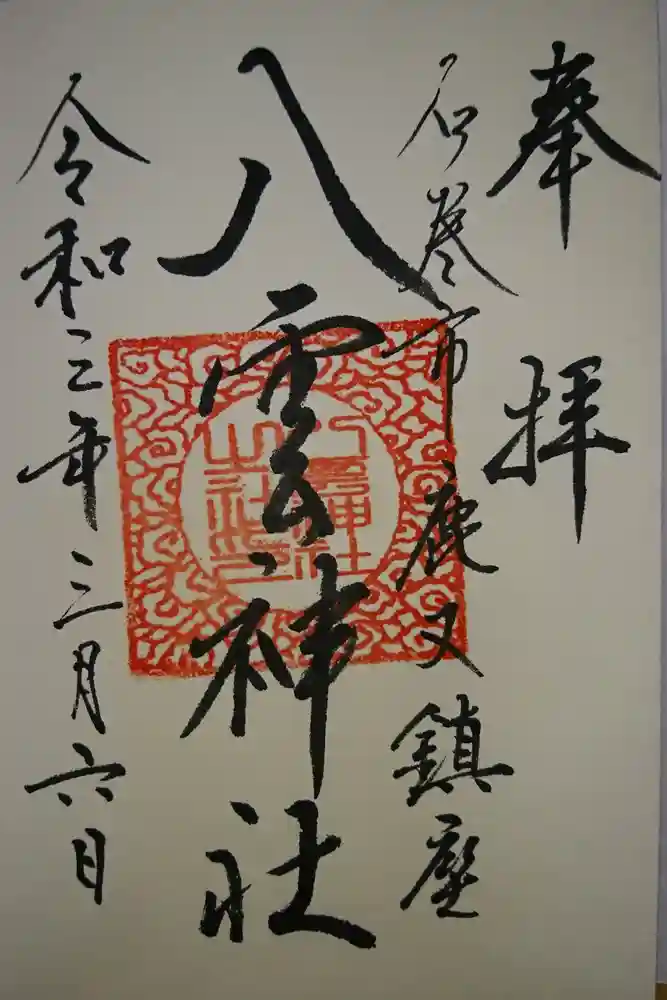 奉拝
石巻市鹿又鎮座
八雲神社
令和三年三月六日